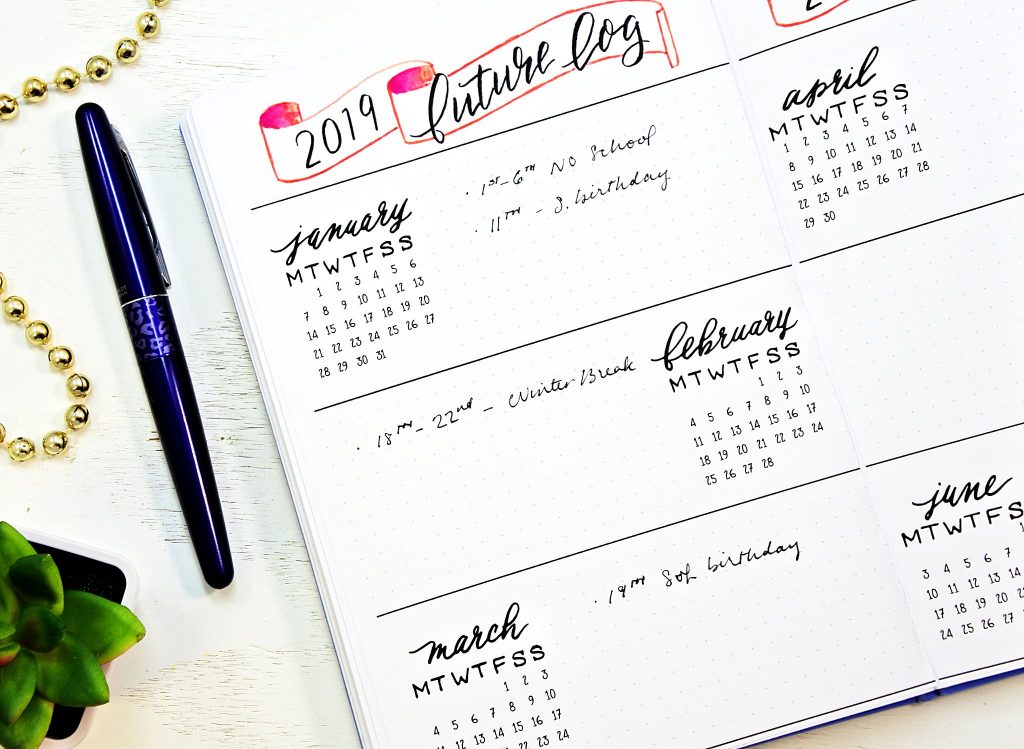 2019 future log
january
M T W T F S S
1 2 3 4 5 6
7 8 9 10 11 12 13
14 15 16 17 18 19 20
21 22 23 24 25 26 27
28 29 30 31
• 1st-6th NO School
• 11th - S. birthday
february
M T W T F S S
1 2 3
4 5 6 7 8 9 10
11 12 13 14 15 16 17
18 19 20 21 22 23 24
25 26 27 28
• 18th - 22nd - Winter Break
march
M T W T F S S
1 2 3
4 5 6 7 8 9 10
11 12 13 14 15 16 17
22 23 24
• 19th birthday
april
M T W T F S S
1 2 3 4 5 6 7
8 9 10 11 12 13 14
15 16 17 18 19 20 21
22 23 24 25 26 27 28
29 30
june
M T W T F S
3 4 5 6 7
10 11 12 13 14
17 18 19 20 21
24 25 26 27